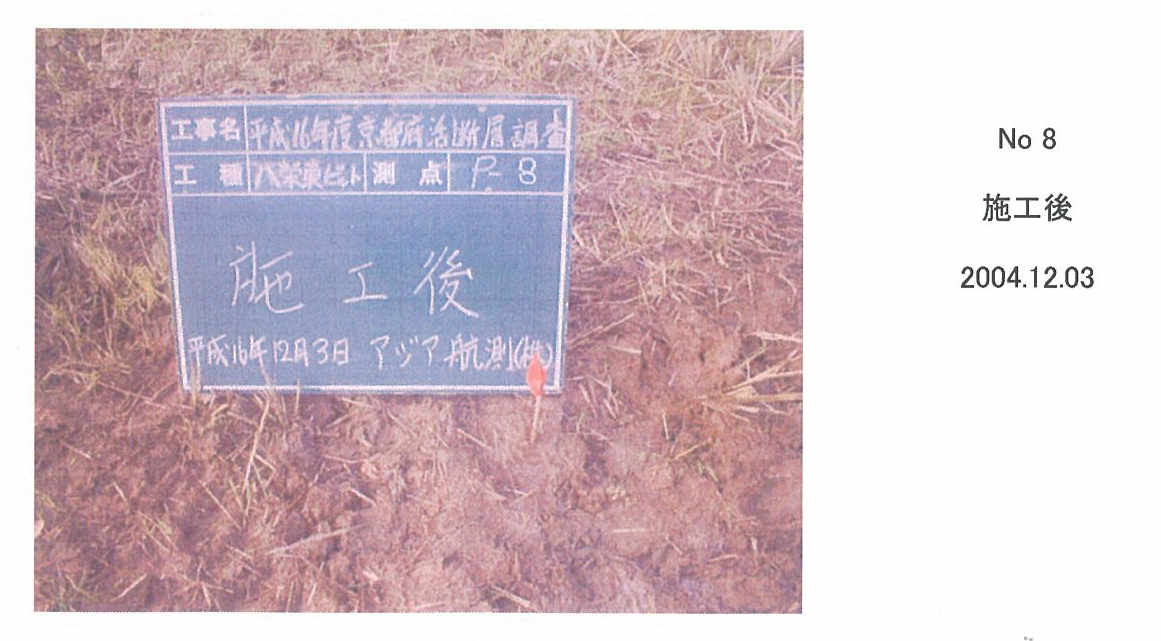 工事名 平成16年度京都府活断層調査
工種 八栄東ピット 測点 P-8
施工後
平成16年12月3日 アジア航測(株)
No 8
施工後
2004.12.03